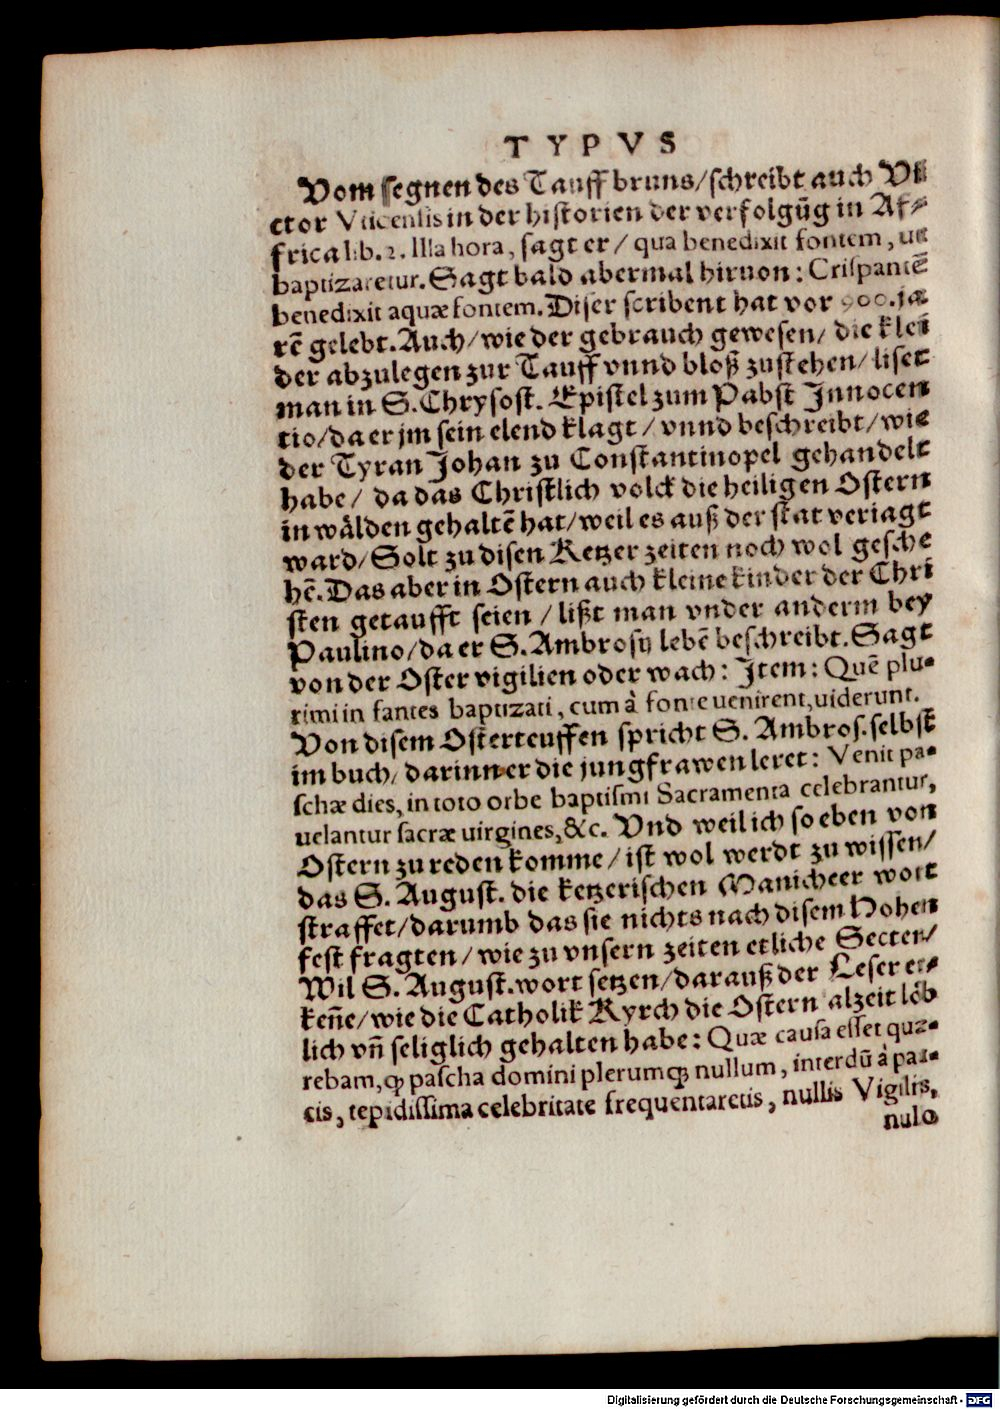 TYPVS
Vom segnen des Tauff bruns/schreibt auch Vi
ctor Vticensis in der historien der verfolgũg in Af-
frica lib. 2. Illa hora, sagt er / qua benedixit fontem, ut
baptizaretur. Sagt bald abermal hiruon: Crispantẽ
benedixit aquæ fontem. Diser scribent hat vor 900. ja
rẽ gelebt. Auch/ wie der gebrauch gewesen/ die klei
der abzulegen zur Tauff vnnd bloß zustehen/ liset
man in S. Chrysost. Epistel zum Pabst Innocen
tio/ da er jm sein elend klagt / vnnd beschreibt/ wie
der Tyran Johan zu Constantinopel gehandelt
habe/ da das Christlich volck die heiligen Ostern
in wålden gehaltẽ hat/ weil es auß der stat veriagt
ward/ Solt zu disen Ketzer zeiten noch wol gesche
hẽ. Das aber in Ostern auch kleine kinder der Chri
sten getaufft seien / lißt man vnder anderm bey
Paulino/ da er S. Ambrosij lebẽ beschreibt. Sagt
von der Oster vigilien oder wach: Item: Quẽ plu-
rimi in fantes baptizati, cum à fonte uenirent, uiderunt.
Von disem Osterteuffen spricht S. Ambros. selbst
im buch/ darinn er die jungfrawen leret: Venit pa-
schæ dies, in toto orbe baptismi Sacramenta celebrantur,
uelantur sacræ uirgines, &c. Vnd weil ich so eben von
Ostern zu reden komme/ ist wol werdt zu wissen/
das S. August. die ketzerischen Manicheer wort
straffet/ darumb das sie nichts nach disem Hohen
fest fragten/ wie zu vnsern zeiten etliche Secten/
Wil S. August. wort setzen/ darauß der Leser er-
keñe/ wie die Catholik Kyrch die Ostern alzeit lŏb
lich vñ seliglich gehalten habe: Quæ causa esset quæ-
rebam, ꝙ pascha domini plerumꝙ nullum, interdũ à pau-
cis, tepidissima celebritate frequentaretis, nullis Vigilijs,
nulo
Digitalisierung gefördert durch die Deutsche Forschungsgemeinschaft - DFG